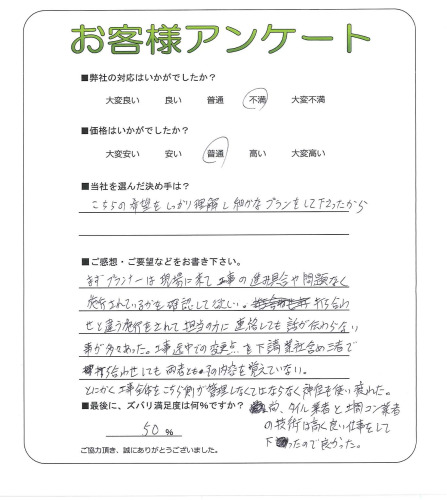 お客様アンケート
■弊社の対応はいかがでしたか?
大変良い 良い 普通 不満 大変不満
■価格はいかがでしたか?
大変安い 安い 普通 高い 大変高い
■当社を選んだ決め手は?
こちらの希望をしっかり理解し細かなプランをして下さったから
■ご感想・ご要望などをお書き下さい。
まずプランナーは現場に来て工事の進具合や問題なく
施行されているかを確認して欲しい。打ち合わ
せと違う施行をされて担当の方に連絡しても話が伝わらない
事が多々あった。工事途中での変更点を下請業社含め三者で
打ち合わせしても両者ともその内容を覚えていない。
とにかく工事全体をこちら側が管理しなくてはならなく神経を使い疲れた。
■最後に、ズバリ満足度は何%ですか?
50 %
尚、タイル業者と土間コン業者
の技術は高く良い仕事をして
下さったので良かった。
ご協力頂き、誠にありがとうございました。